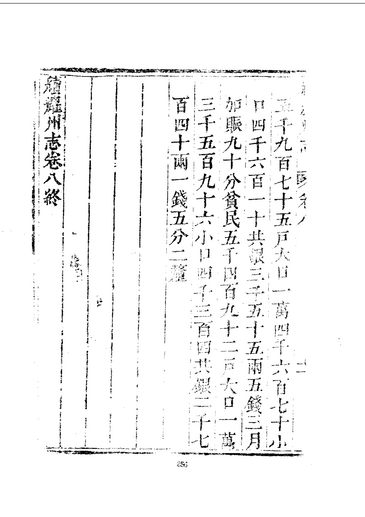 五千九百七十五戶大口一萬四千六百七十小
口四千六百一十共銀三千五十五兩五錢三月
加賑九十分貧民五千四百九十二戶大口一萬
三千五百九十六小口四千三百四共銀二千七
百四十兩一錢五分二釐
續耀州志卷八終